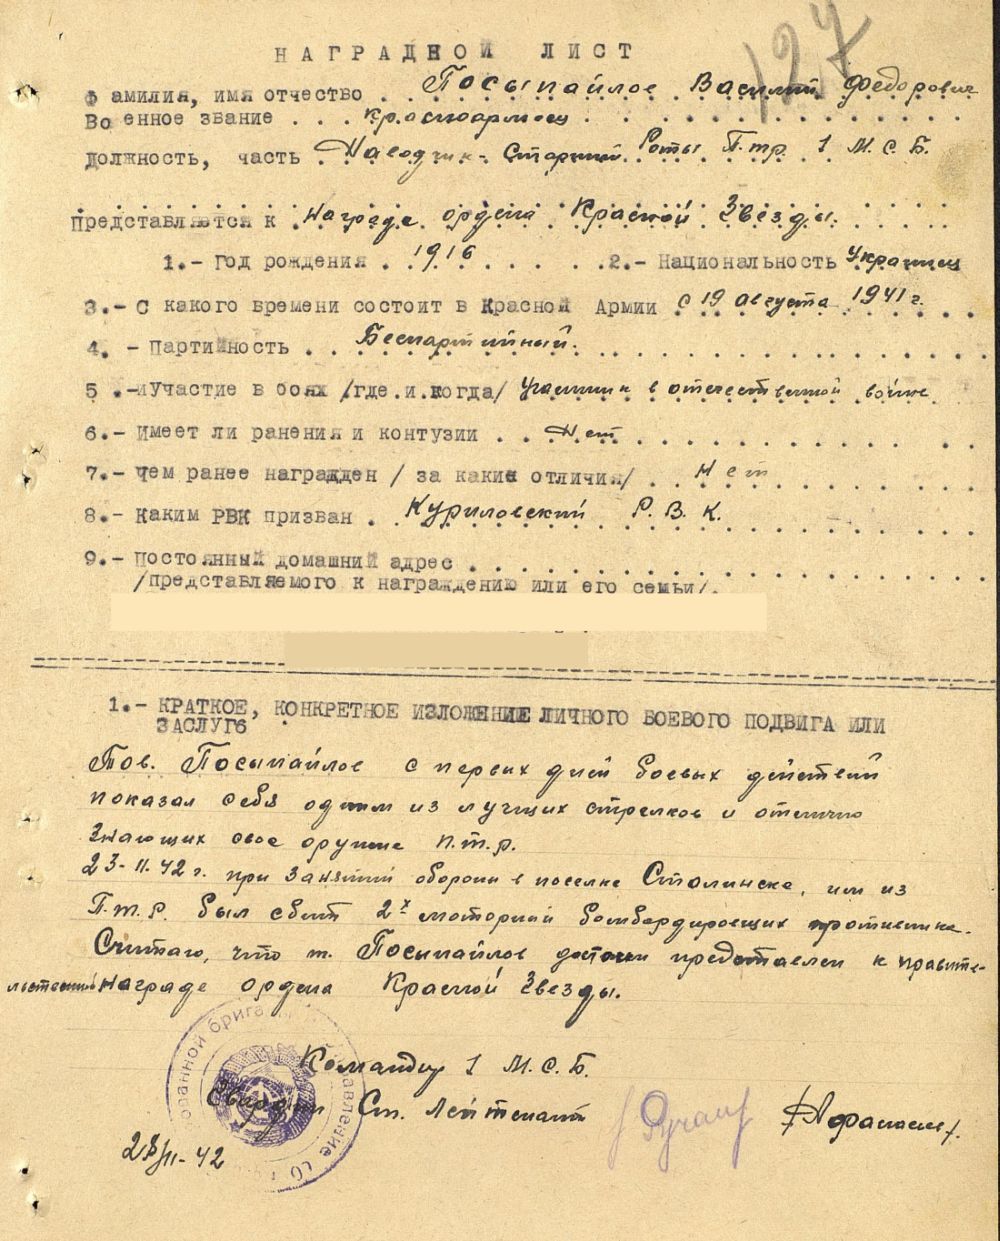 127
НАГРАДНОЙ ЛИСТ
Фамилия, имя отчество . Посыпайлов Василий Федорович
Военное звание . . . Красноармеец
Должность, часть . Наводчик- Старший Роты П.т.р. 1 М.С.Б.
Представляется к Награде ордена Красной Звезды.
1.- Год рождения . 1916 . . . . . 2.- Национальность Украинец
3.- С какого времени состоит в Красной Армии с 19 августа 1941 г.
4. - Партийность . . Беспартийный.
5 .-Участие в боях /где.и.когда/ Участник в отечественной войне
6.- Имеет ли ранения и контузии . . Нет
7.- Чем ранее награжден / за какие отличия/ . . Нет
8.- Каким РВК призван . Куриловский Р.В.К.
9.- Постоянный домашний адрес
/представляемого к награждению или его семьи/.
1.- КРАТКОЕ, КОНКРЕТНОЕ ИЗЛОЖЕНИЕ ЛИЧНОГО БОЕВОГО ПОДВИГА ИЛИ
ЗАСЛУГ
Тов. Посыпайлов с первых дней боевых действий
показал себя одним из лучших стрелков и отлично
знающих свое оружие п.т.р.
23-11-42 г. при занятии обороны в поселке Столинске, им из
П.т.Р. был сбит 2х моторный бомбардировщик противника.
Считаю, что т. Посыпайлов достоин представлен к правите-
льственной Награде ордена Красной Звезды.
Командир 1 М.С.Б.
Ст. Лейтенант
28/11-42